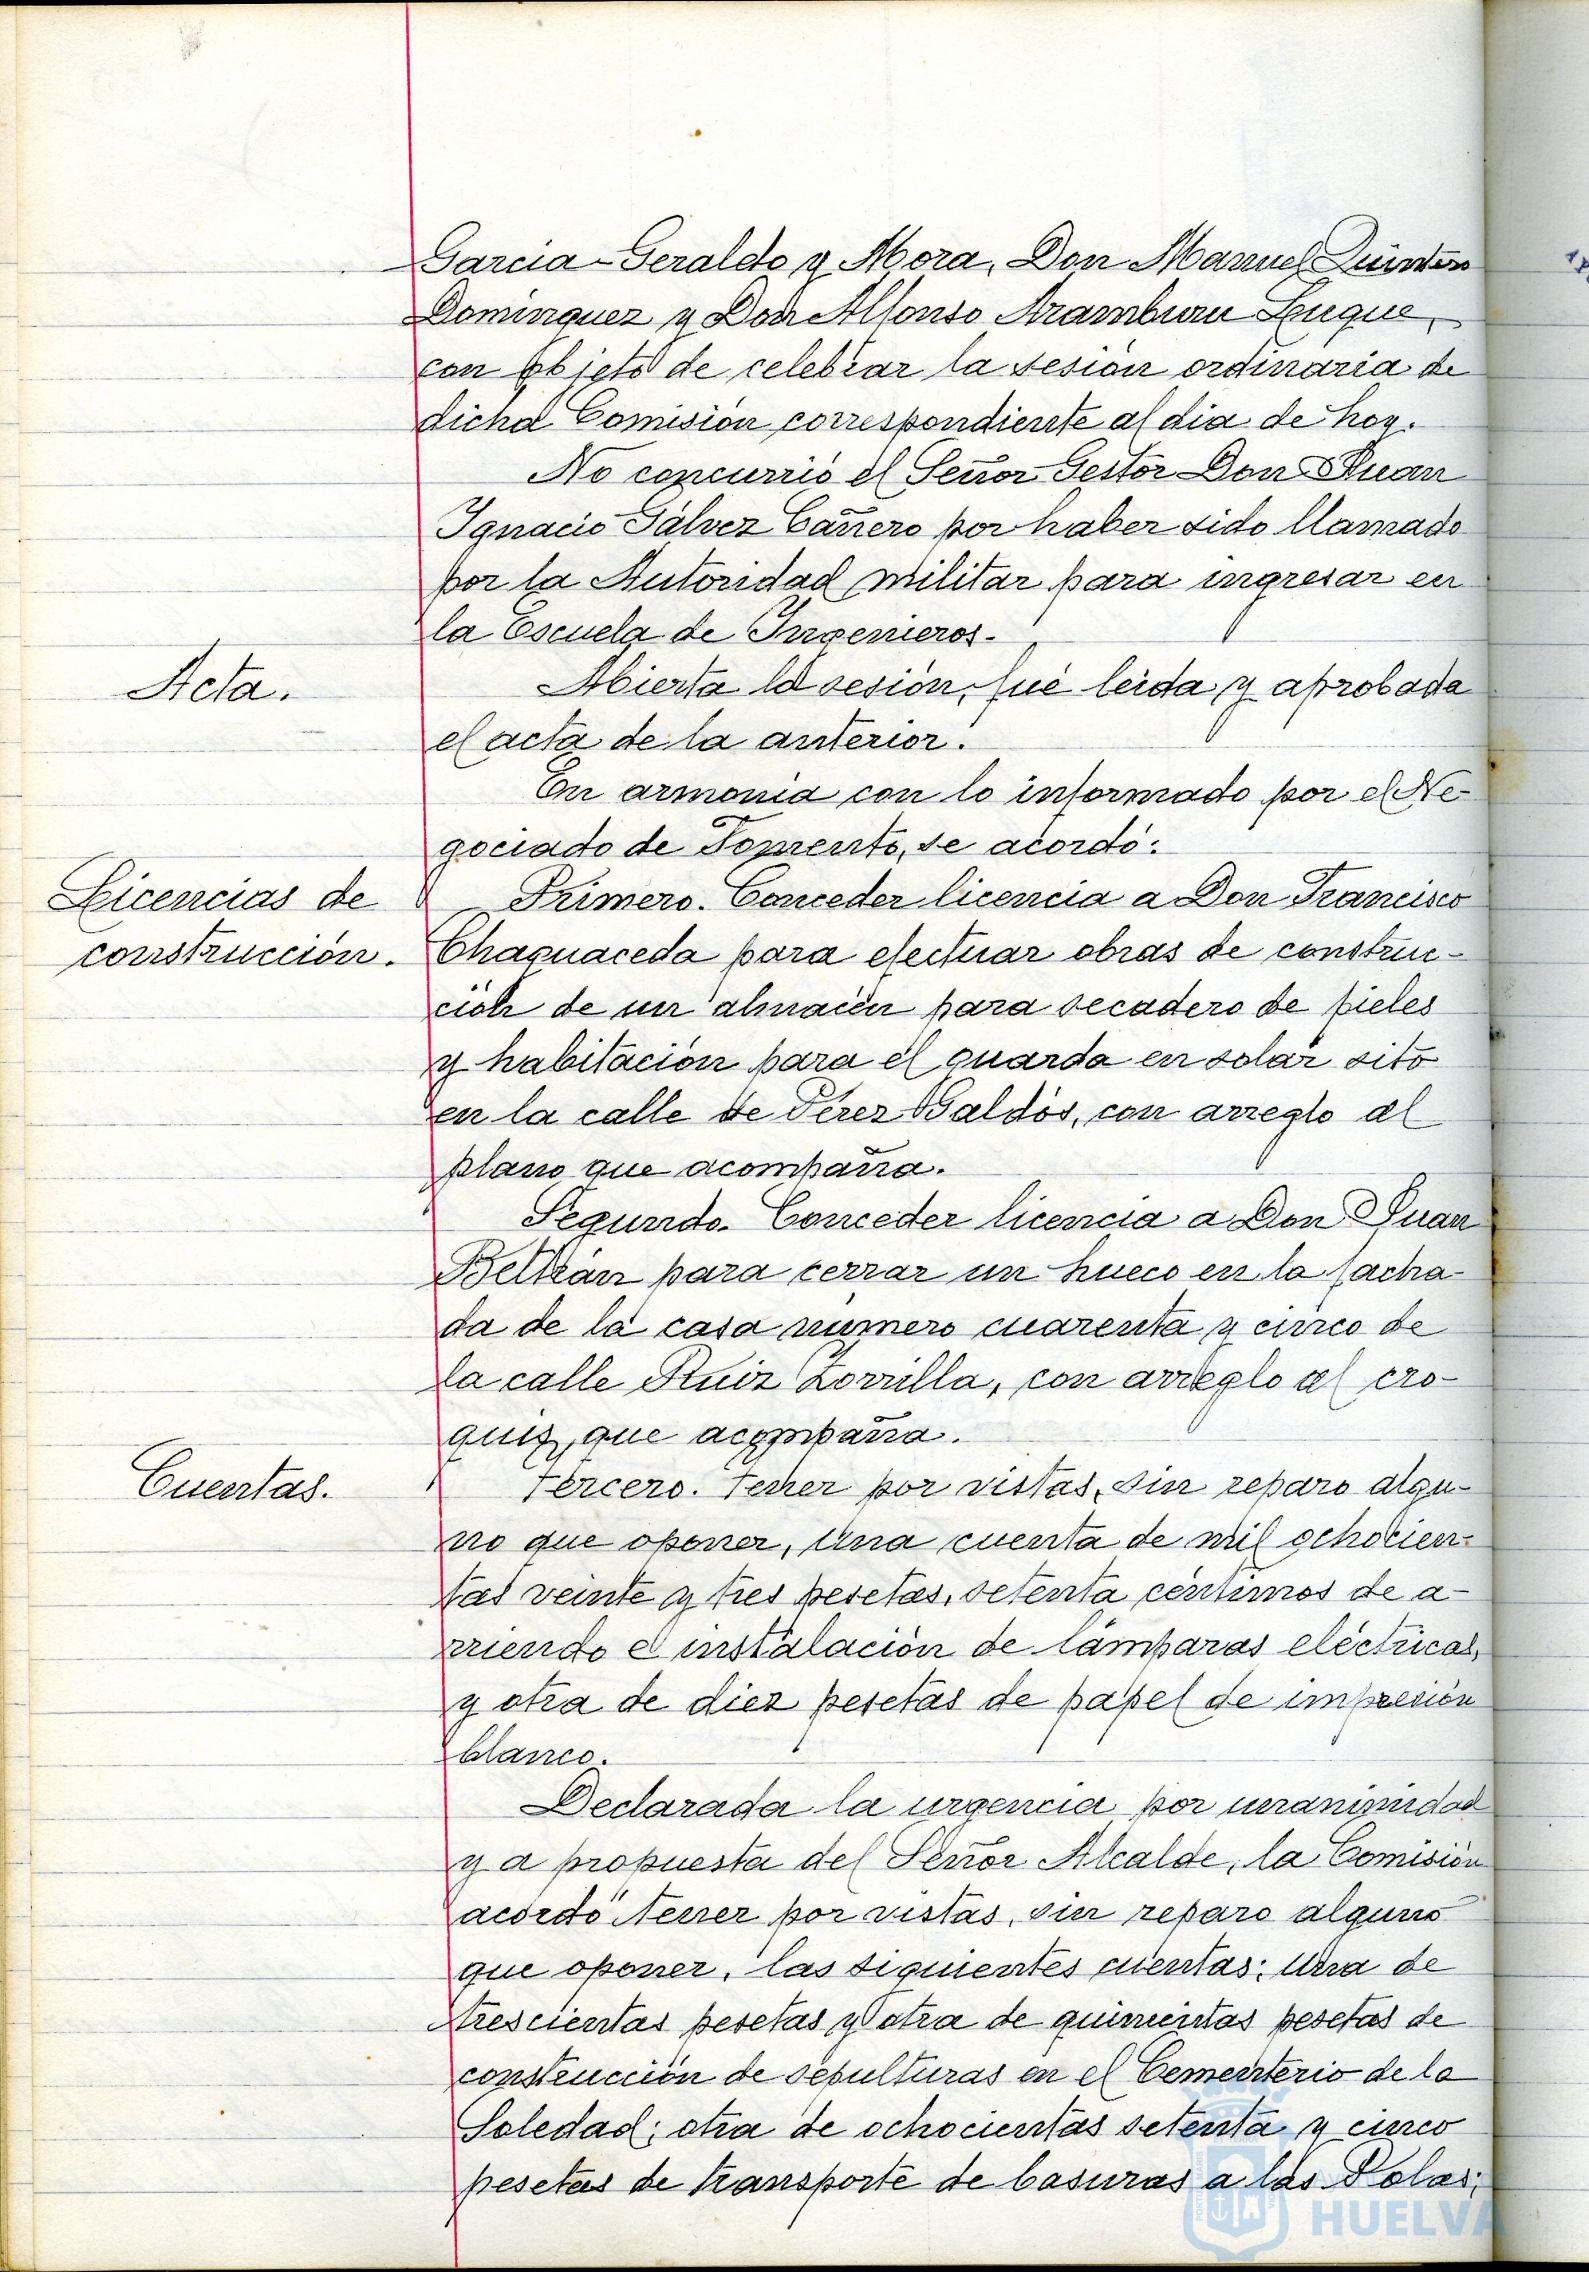 Garcia-Geraldo y Mora, Don Manuel Quintero
Dominguez y Don Alfonso Aramburu Luque,
con objeto de celebrar la sesión ordinaria de
dicha Comisión correspondiente al dia de hoy.
No concurrió el Señor Gestor Don Juan
Ignacio Gálvez Cañero por haber sido llamado
por la Autoridad militar para ingresar en
la Escuela de Ingenieros.
Acta.
Abierta la sesión, fué leida y aprobada
el acta de la anterior.
En armonia con lo informado por el Ne-
gociado de Fomento, se acordó:
Licencias de
construcción.
Primero. Conceder licencia a Don Francisco
Chaguaceda para efectuar obras de construc-
ción de un almacén para secadero de pieles
y habitación para el guarda en solar sito
en la calle de Pérez Galdós, con arreglo al
plano que acompaña.
Segundo. Conceder licencia a Don Juan
Beltrán para cerrar un hueco en la facha-
da de la casa número cuarenta y cinco de
la calle Ruiz Zorrilla, con arreglo al cro-
quis, que acompaña.
Cuentas.
Tercero. Tener por vistas, sin reparo algu-
no que oponer, una cuenta de mil ochocien-
tas veinte y tres pesetas, setenta céntimos de a-
rriendo e instalación de lámparas eléctricas,
y otra de diez pesetas de papel de impresión
blanco.
Declarada la urgencia por unanimidad
y a propuesta del Señor Alcalde, la Comisión
acordó tener por vistas, sin reparo alguno
que oponer, las siguientes cuentas: Una de
trescientas pesetas y otra de quinientas pesetas de
construcción de sepulturas en el Cementerio de la
Soledad; otra de ochocientas setenta y cinco
pesetas de transporte de basuras a las Polas;
HUELVA